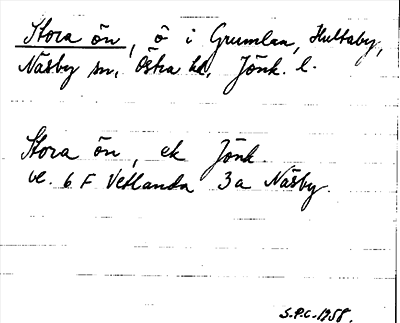 Stora ön, ö i Grumlan, Hultaby,
Näsby sn, Östra hd, Jönk. l.
Stora ön, ek Jönk.
bl. 6 F Vetlanda 3a Näsby.
S.P.C. 1958.